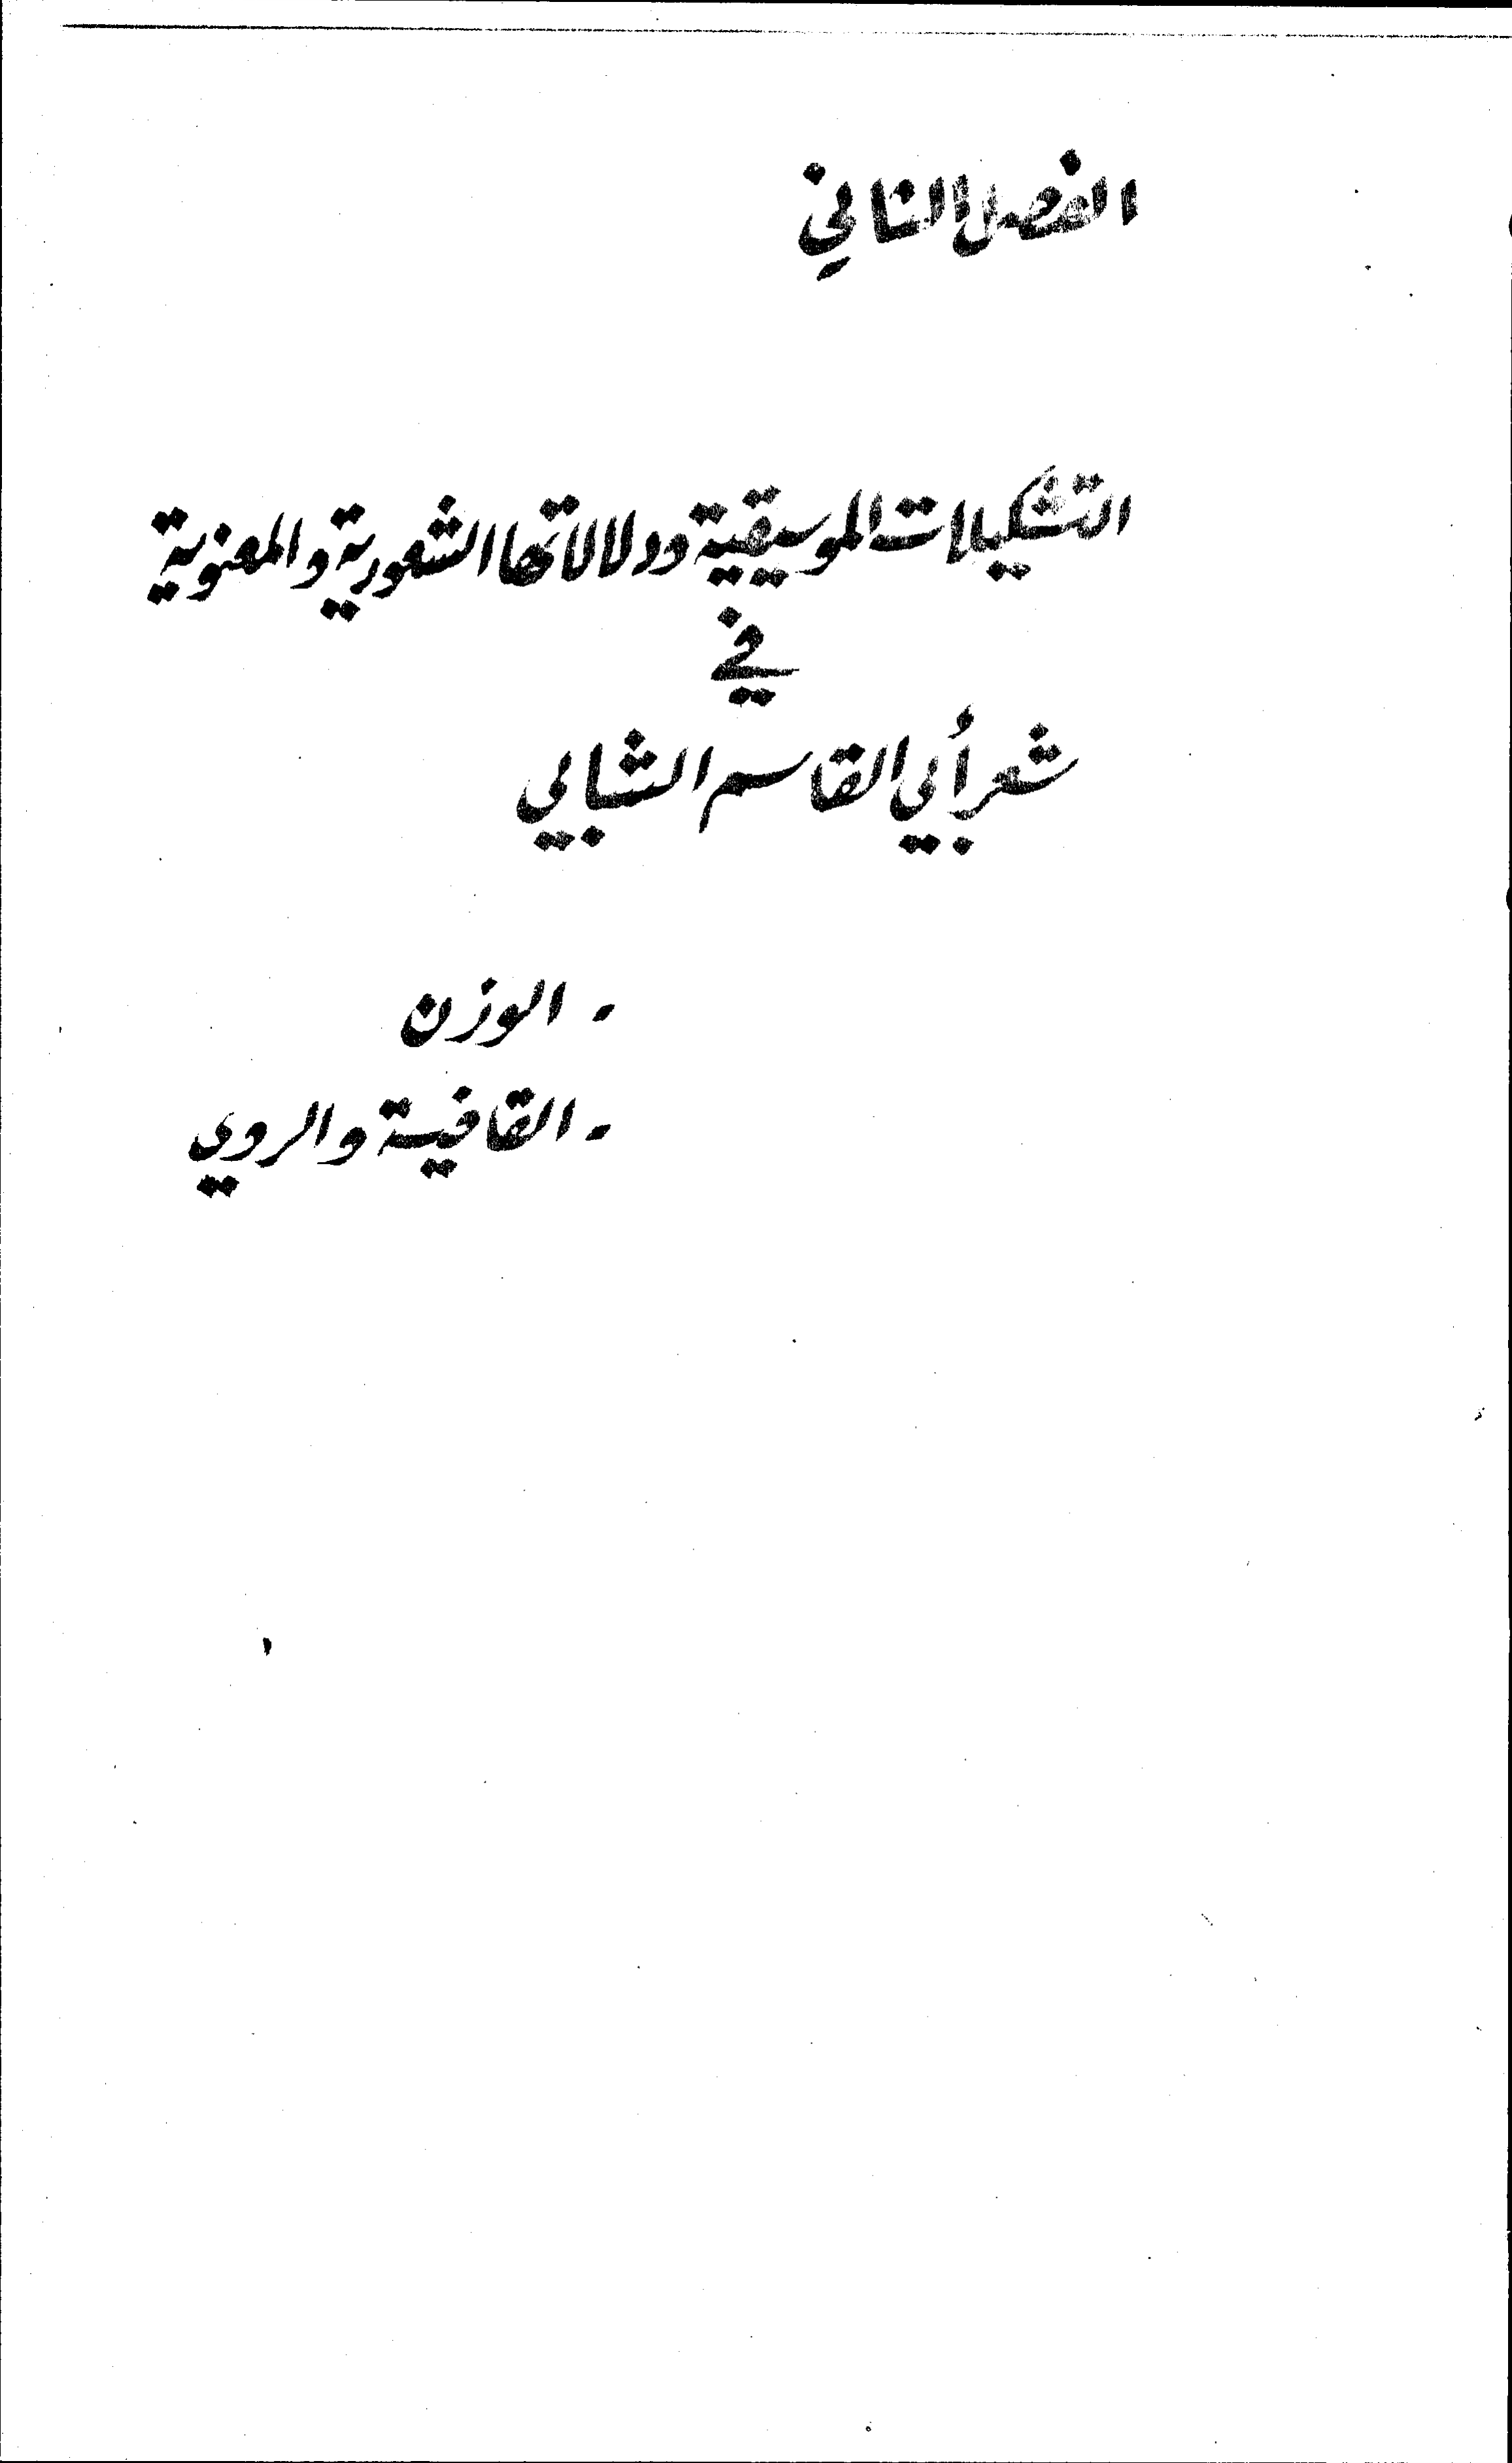 الفصل الثاني
التشكيلات الموسيقية ودلالاتها الشعورية والمعنوية
في
شعر أبي القاسم الشابي
- الوزن
- القافية والروي